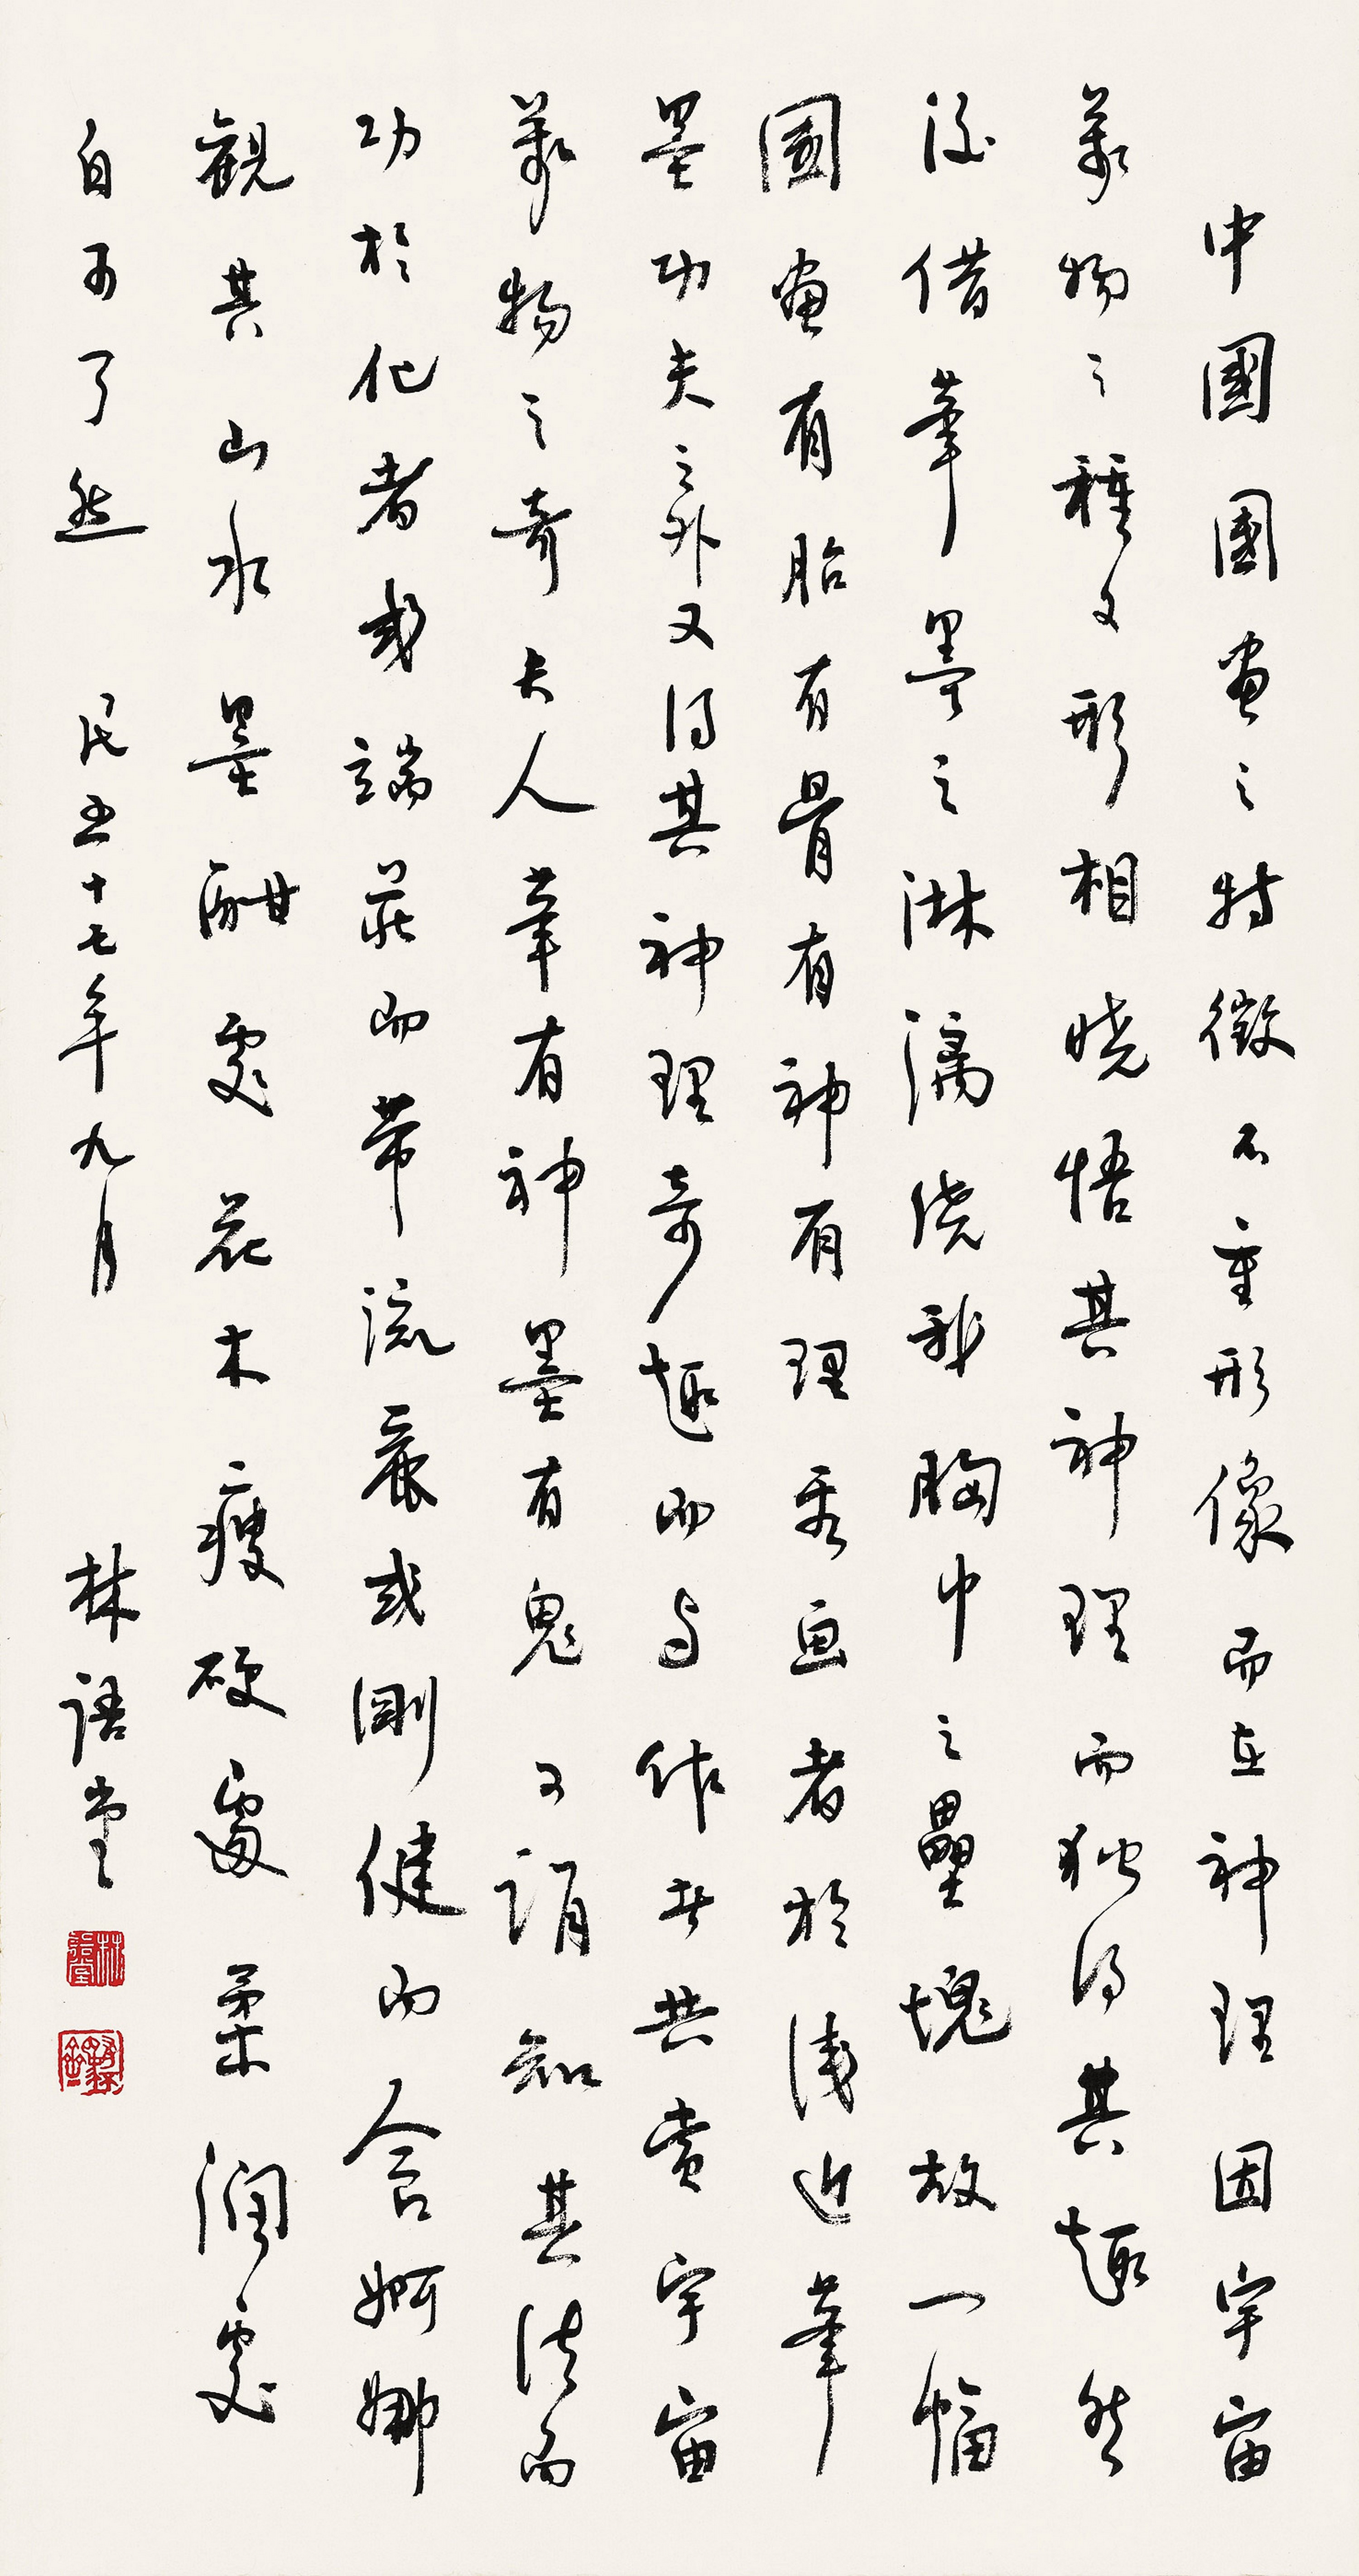 中國國畫之特徵不重形像而在神理因宇宙
萬物之種々形相曉悟其神理而独得其趣然
後借筆墨之淋漓澆我胸中之壘塊故一幅
國畫有胎有骨有神有理 画者於淺近筆
墨功夫之外又得其神理奇趣而与作者共賞宇宙
萬物之奇夫人筆有神墨有鬼又須知其法而
功於化者或端莊而帶流麗或剛健而含婀娜
觀其山水墨酣處花木瘦硬處柔潤處
自可了然 民五十七年九月 林語堂
林語堂